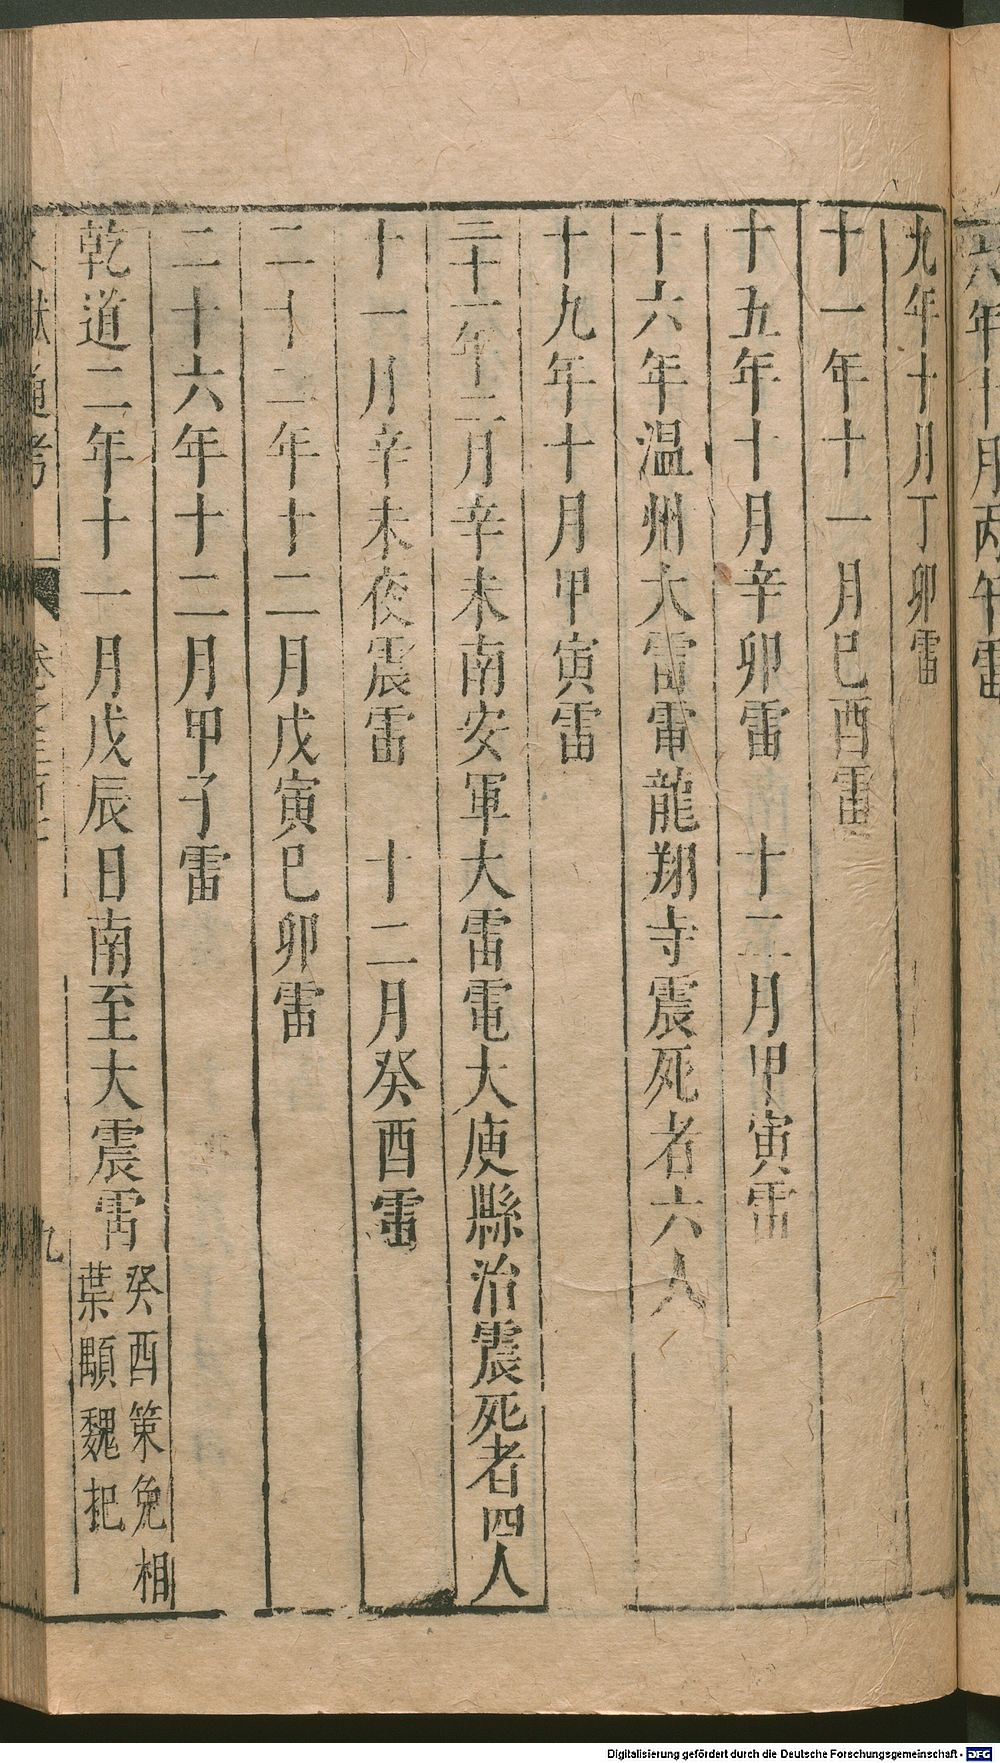 六年十月丙午雷
九年十月丁卯雷
十一年十一月巳酉雷
十五年十月辛卯雷　十二月甲寅雷
十六年温州大雷電龍翔寺震死者六人
十九年十月甲寅雷
二十一年十二月辛未南安軍大雷電大庾縣治震死者四人
十一月辛未夜震雷　十二月癸酉雷
二十二年十二月戊寅巳卯雷
二十六年十二月甲子雷
乾道二年十一月戊辰日南至大震雷癸酉策免相
葉顒魏杞
文獻通考 卷之三百 九
Digitalisierung gefördert durch die Deutsche Forschungsgemeinschaft - DFG